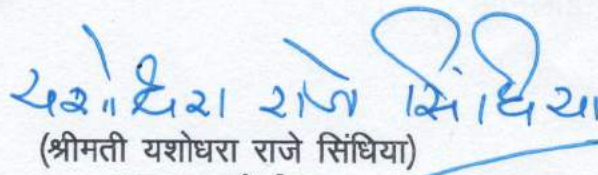 यशोधरा राजे सिंधिया
(श्रीमती यशोधरा राजे सिंधिया)